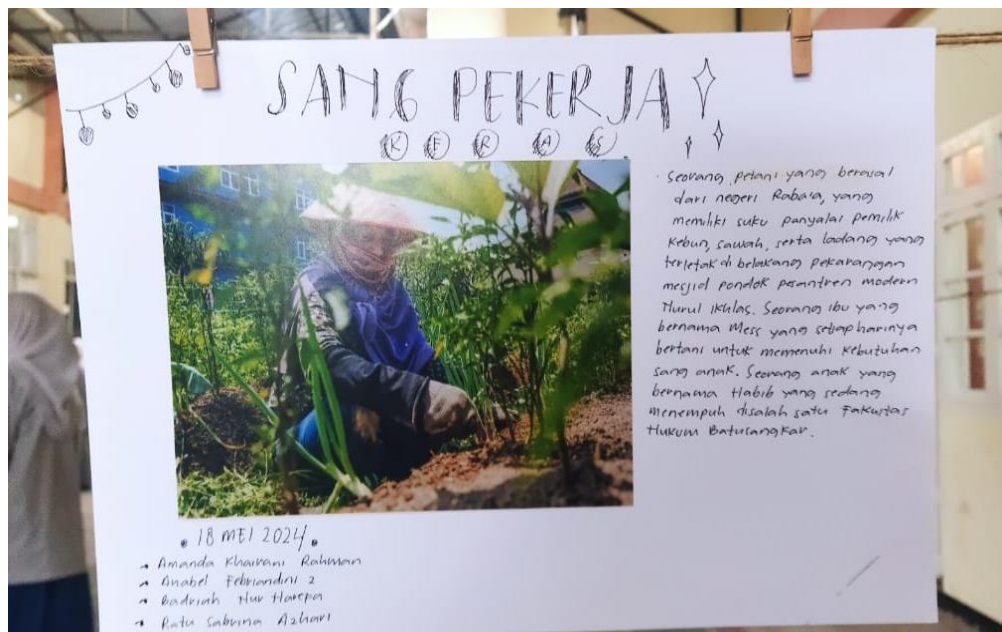 SANG PEKERJA
KERAS
Seorang petani yang berasal
dari negeri Raba'a, yang
memiliki suku panyalai pemilik
kebun, sawah, serta ladang yang
terletak di belakang pekarangan
mesjid pondok pesantren modern
Nurul Ikhlas. Seorang ibu yang
bernama Mess yang setiap harinya
bertani untuk memenuhi kebutuhan
sang anak. Seorang anak yang
bernama Habib yang sedang
menempuh disalah satu Fakultas
Hukum Batusangkar.
18 MEI 2024
Amanda Khairani Rahman
Anabel Febriandini Z
Badriah Nur Harepa
Ratu Sabrina Azhari